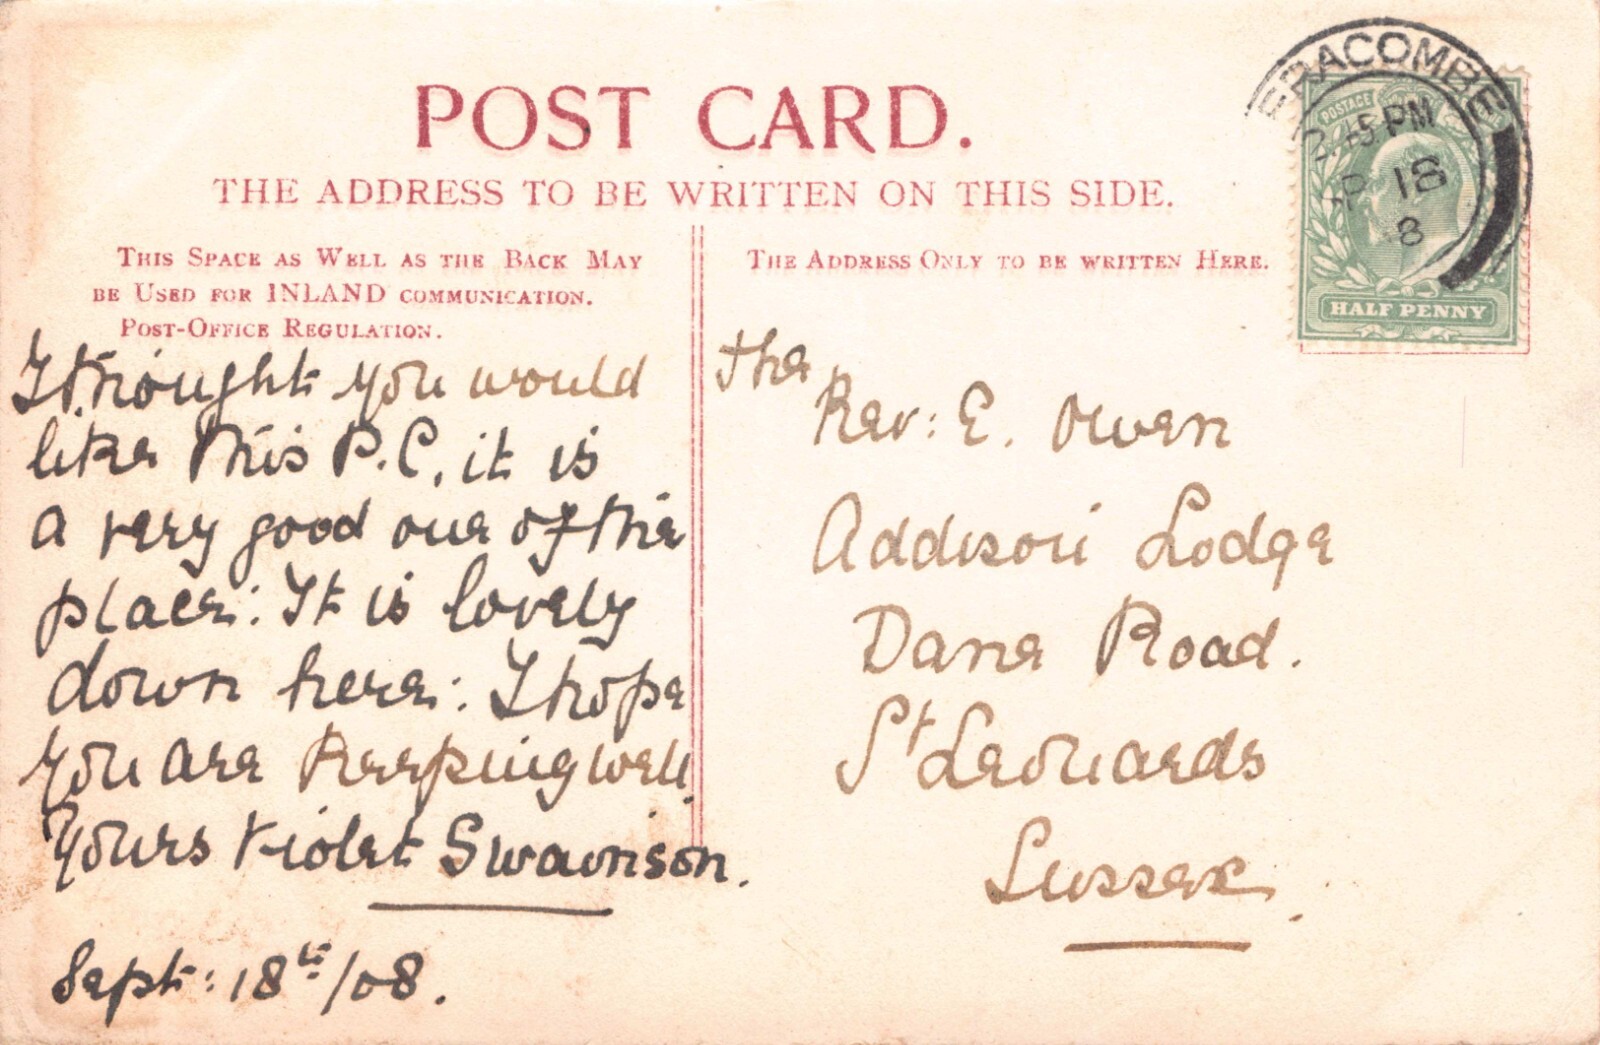 POST CARD.
THE ADDRESS TO BE WRITTEN ON THIS SIDE.
THIS SPACE AS WELL AS THE BACK MAY
BE USED FOR INLAND COMMUNICATION.
POST-OFFICE REGULATION.
I thought you would
like this P.C, it is
a very good one of the
place: It is lovely
down here: I hope
you are keeping well.
Yours Violet Swainson.
Sept: 18th/08.
THE ADDRESS ONLY TO BE WRITTEN HERE.
The
Rev: E. Owen
Addison Lodge
Dane Road.
St Leonards
Sussex.
FRACOMBE
5 PM
P 18
8
POSTAGE
HALF PENNY